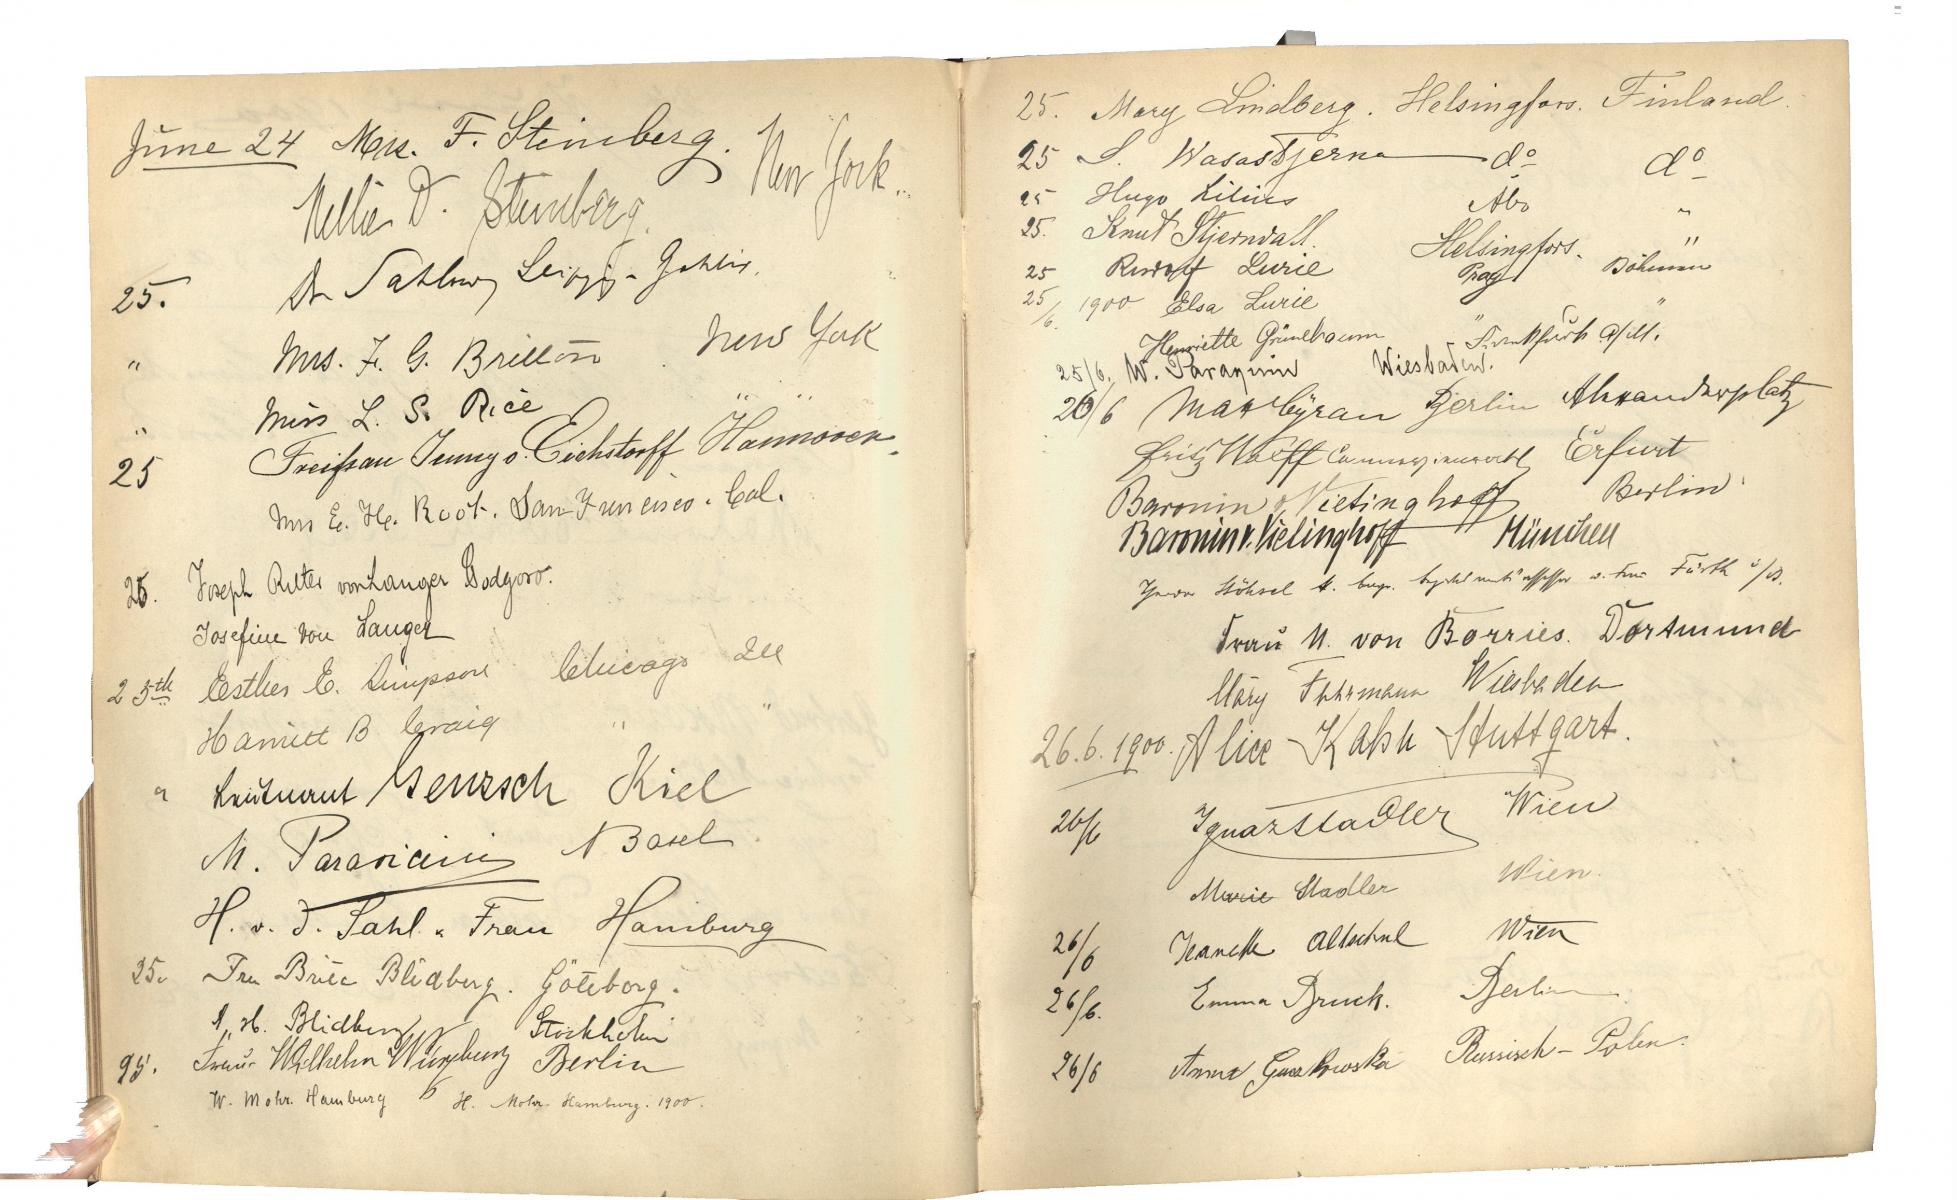 June 24 Mrs. F. Steinberg.
Nellie D. Steinberg. New York
25. Dr Sahlowy Leipzig - Gohlis.
" Mrs. F. G. Britton New York
" Miss L. S. Rice " "
25 Freifrau Jenny v. Eichstorff Hannover.
Mrs E. H. Root. San Francisco. Cal.
25. Joseph Ritter von Langer Bodgoro.
Josefine von Langer
25th Esther E. Simpson Chicago Ill
Harriett B Craig " "
" Leutnant Genzsch Kiel
M. Paravicini Basel
H. v. d. Sahl u Frau Hamburg
25. Fru Brita Blidberg. Göteborg.
A. H. Blidberg Stockholm
25. Frau Wilhelm Würzburg Berlin
W. Mohr. Hamburg H. Mohr. Hamburg. 1900.
25. Mary Lindberg. Helsingfors. Finland.
25 S. Wasastjerna do do
25 Hugo Lilius Åbo "
25. Knut Stjernvall. Helsingfors. "
25 Rudolf Lurie Prag Böhmen
25/6. 1900 Elsa Lurie " "
Henriette Grünebaum Frankfurt a/M.
25/6. W. Wiesbaden.
26/6 Max Cÿran Berlin Alexanderplatz
Fritz Wolff Erfurt
Baronin v Vietinghoff Berlin
Baronin v. Vietinghoff München
Fürth i/B.
Frau M. von Borries. Dortmund
Mary Fuhrmann Wiesbaden
26.6.1900. Alice Kahn Stuttgart.
26/6 Ignaz Stadler Wien
Marie Stadler Wien.
26/6 Jeanette Altschul Wien
26/6. Emma Bruck. Berlin
26/6 Anna Russisch-Polen.